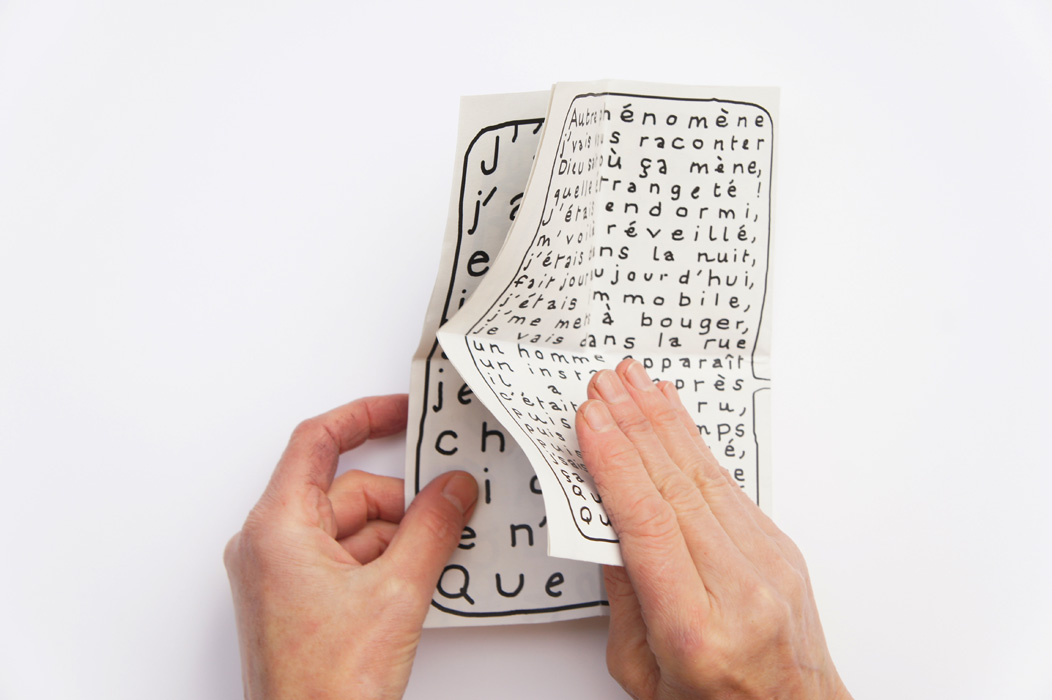 j'
j'a
e
je
ch
i
e n'
Que
Autre phénomène
j'vais vous raconter
Dieu sait où ça mène,
quelle étrangeté !
j'étais endormi,
m'voilà réveillé,
j'étais dans la nuit,
fait jour aujourd'hui,
j'étais immobile,
j'me mets à bouger,
je vais dans la rue
un homme apparaît
un instant après
il a ru,
c'était mps
puis é,